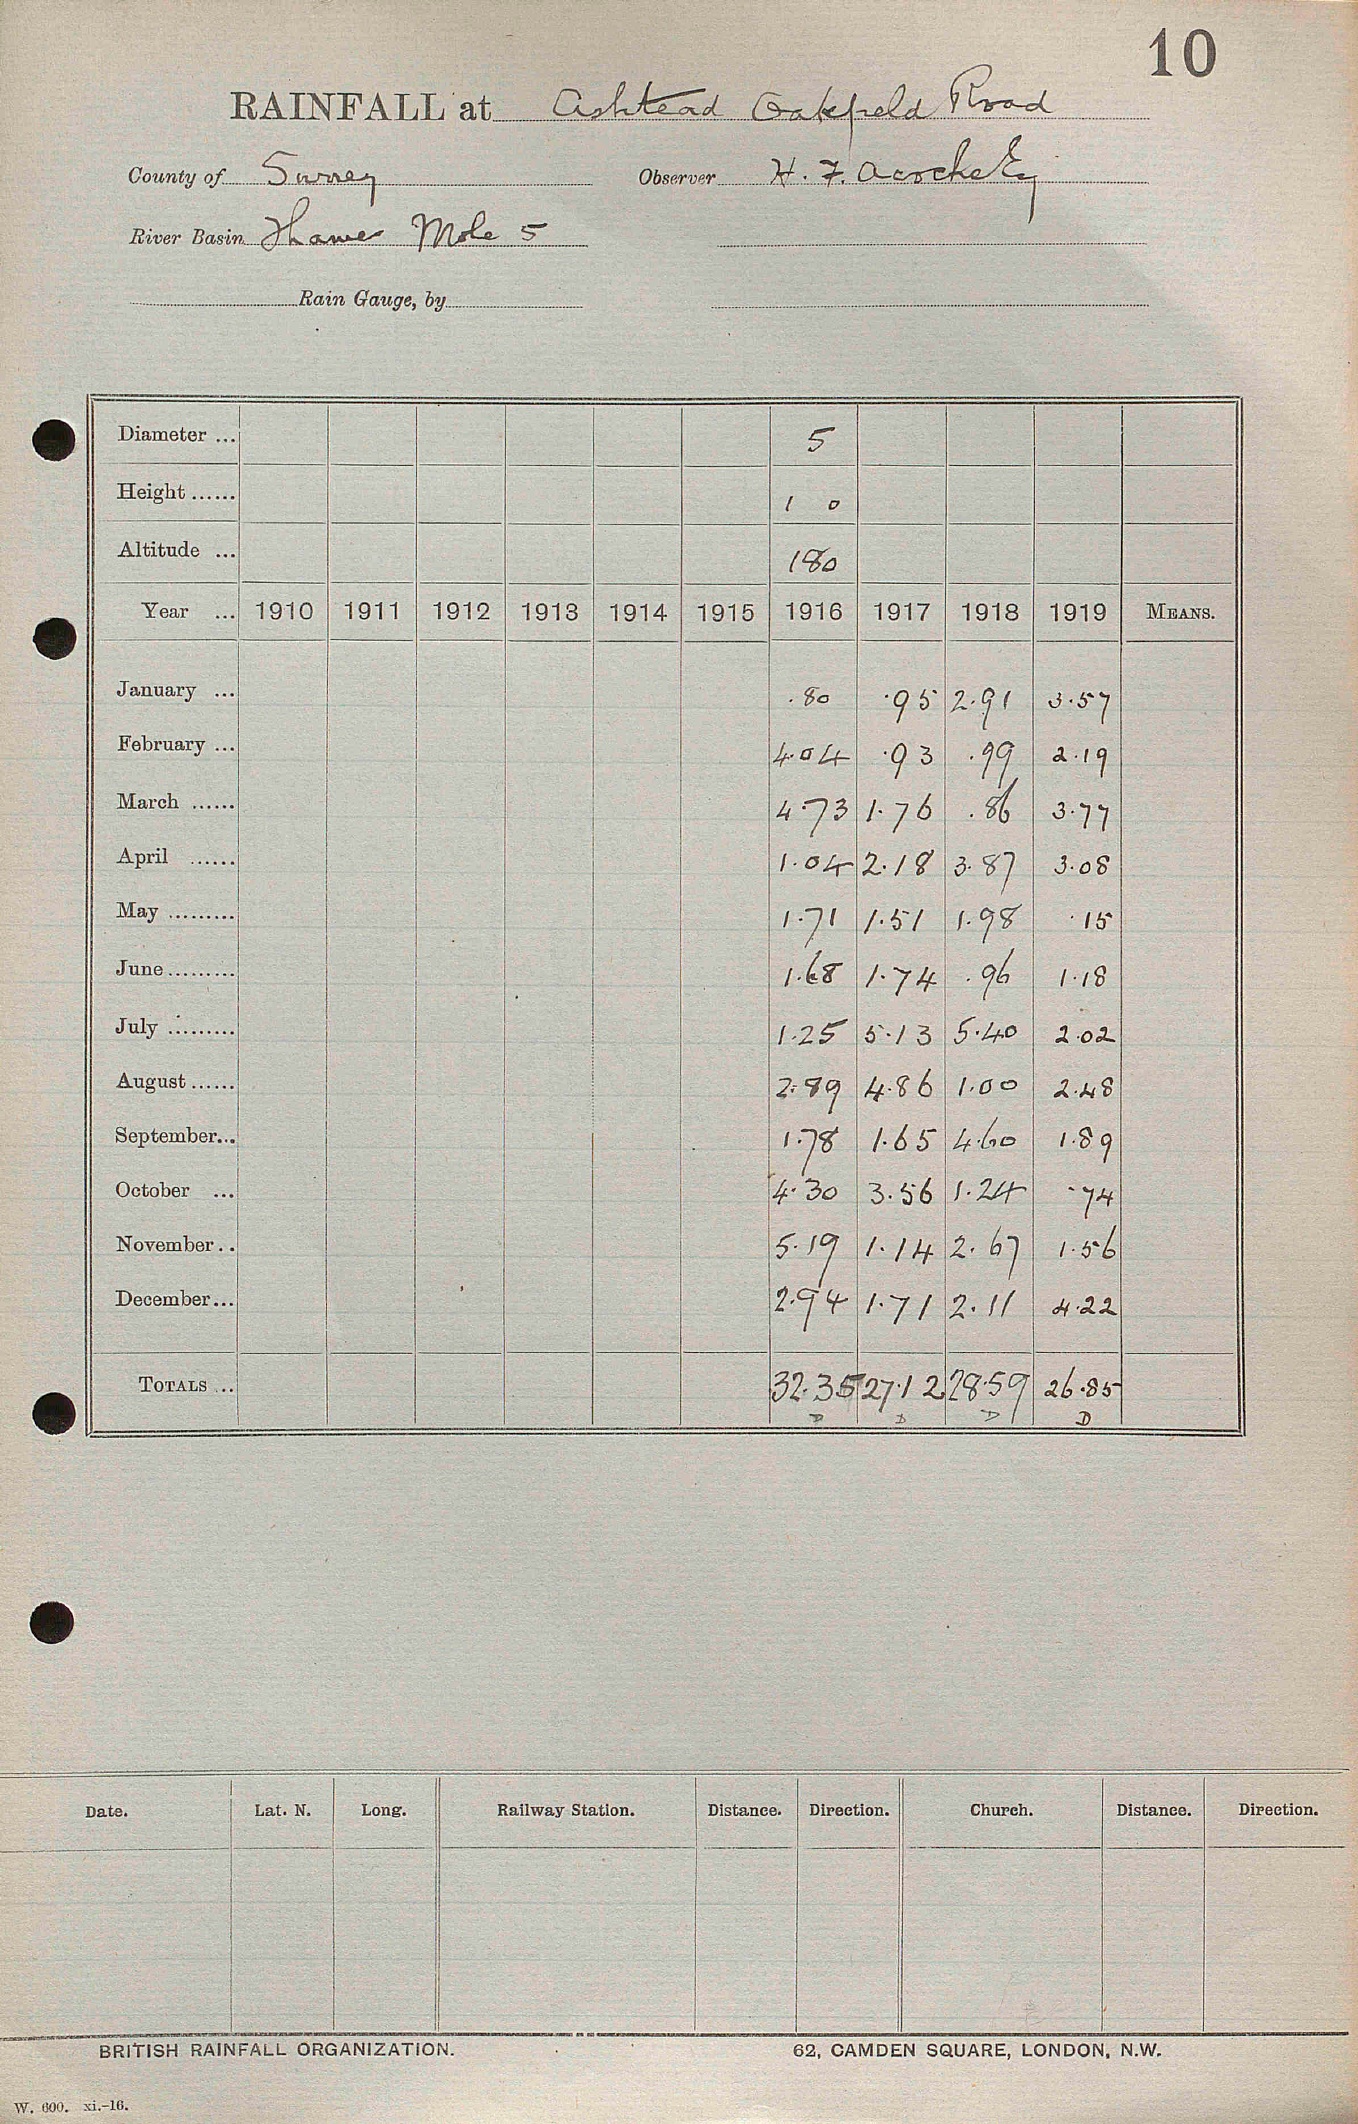 10
RAINFALL at Ashtead Oakfield Road
County of Surrey Observer H. F.
River Basin Thames Mole 5
Rain Gauge, by
Diameter ... 5
Height ...... 1 0
Altitude ... 180
Year ... 1910 1911 1912 1913 1914 1915 1916 1917 1918 1919 MEANS.
January ... .80 .95 2.91 3.57
February ... 4.04 .93 .99 2.19
March ...... 4.73 1.76 .86 3.77
April ...... 1.04 2.18 3.87 3.08
May ......... 1.71 1.51 1.98 .15
June ......... 1.68 1.74 .96 1.18
July ......... 1.25 5.13 5.40 2.02
August ...... 2.89 4.86 1.00 2.48
September... 1.78 1.65 4.60 1.89
October ... 4.30 3.56 1.24 .74
November .. 5.19 1.14 2.67 1.56
December... 2.94 1.71 2.11 4.22
TOTALS ... 32.35 27.12 28.59 26.85
D D D D
Date. Lat. N. Long. Railway Station. Distance. Direction. Church. Distance. Direction.
BRITISH RAINFALL ORGANIZATION. 62, CAMDEN SQUARE, LONDON, N.W.
W. 600. xi.-16.